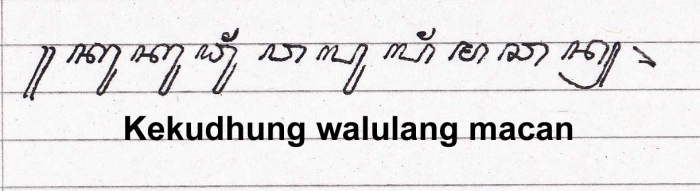 ꧋ꦏꦸꦏꦸꦝꦸꦁꦮꦭꦸꦭꦁꦩꦕꦤ꧀꧈
Kekudhung walulang macan